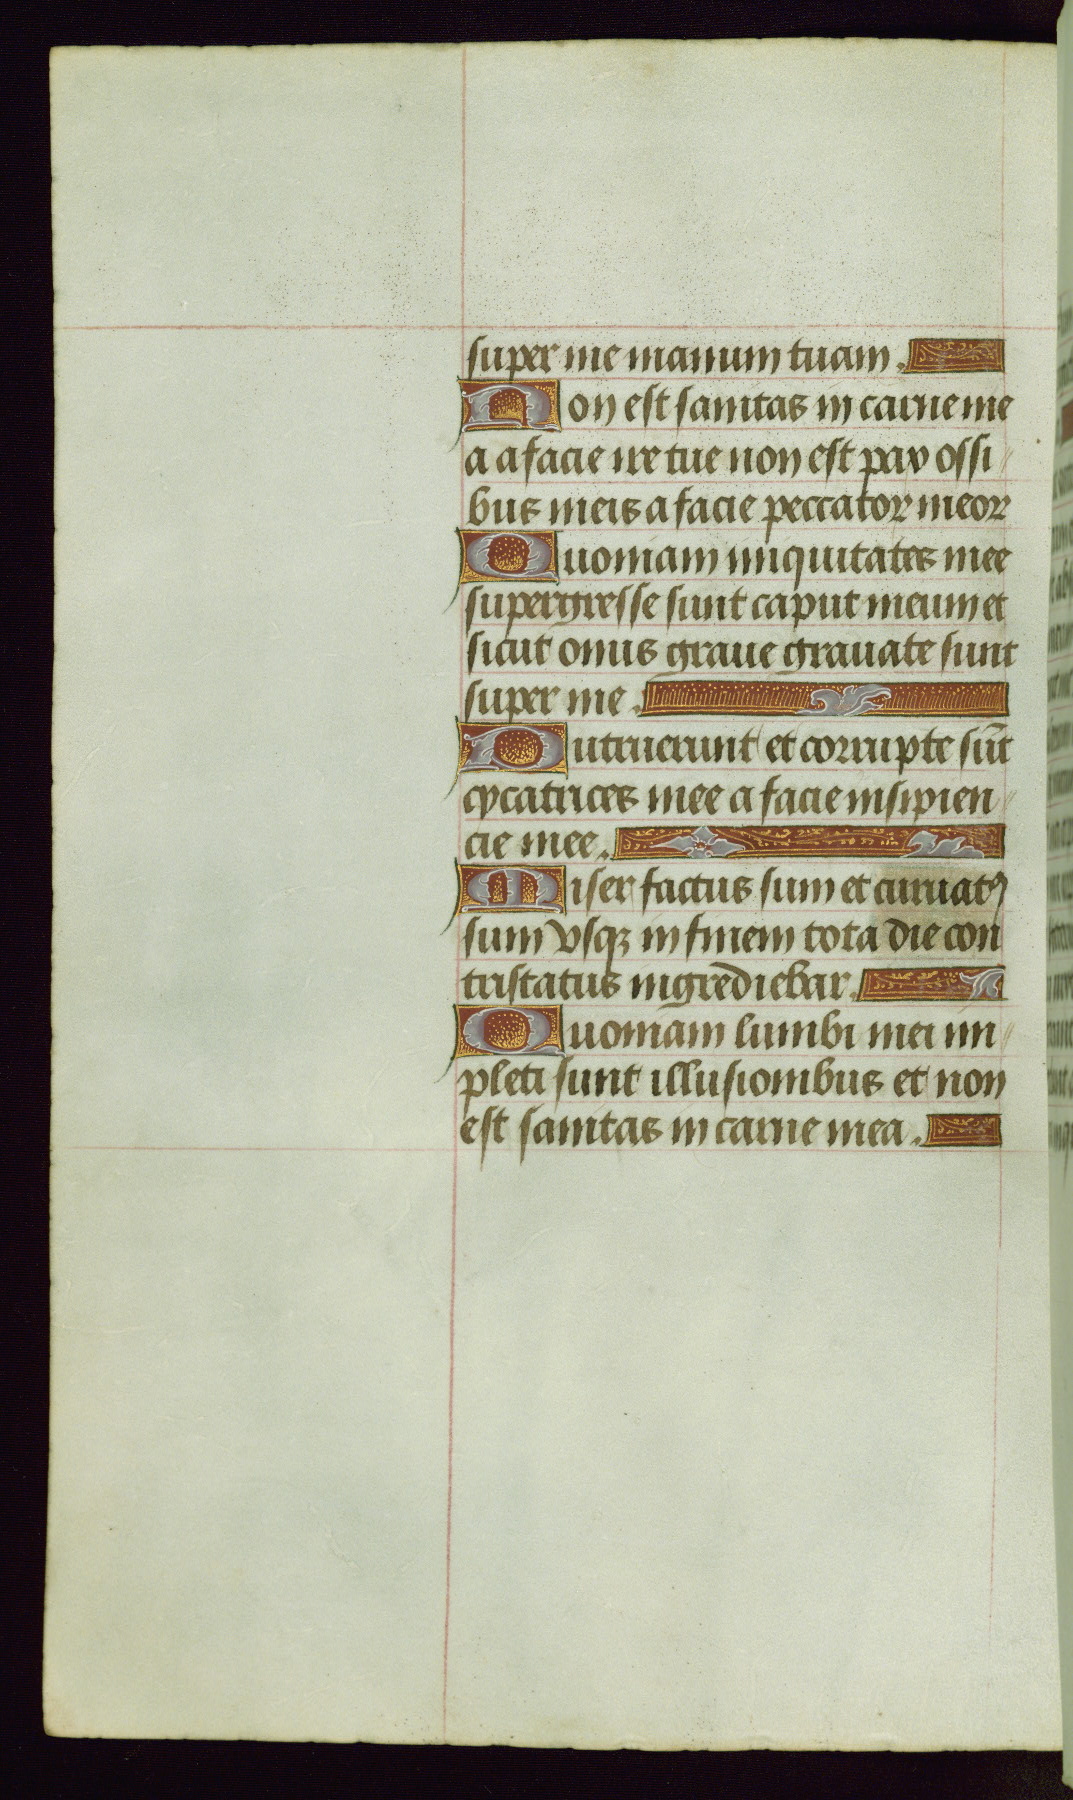 super me manum tuam.
Non est sanitas in carne me
a a facie ire tue non est pax ossi
bus meis a facie peccator meor
Quoniam iniquitates mee
supergresse sunt caput meum et
sicut onus graue grauate sunt
super me.
Putruerunt et corrupte sūt
cycatrices mee a facie insipien
cie mee.
Miser factus sum et curuatꝰ
sum vsqꝫ in finem tota die con
tristatus ingrediebar.
Quoniam lumbi mei im
pleti sunt illusionibus et non
est sanitas in carne mea.